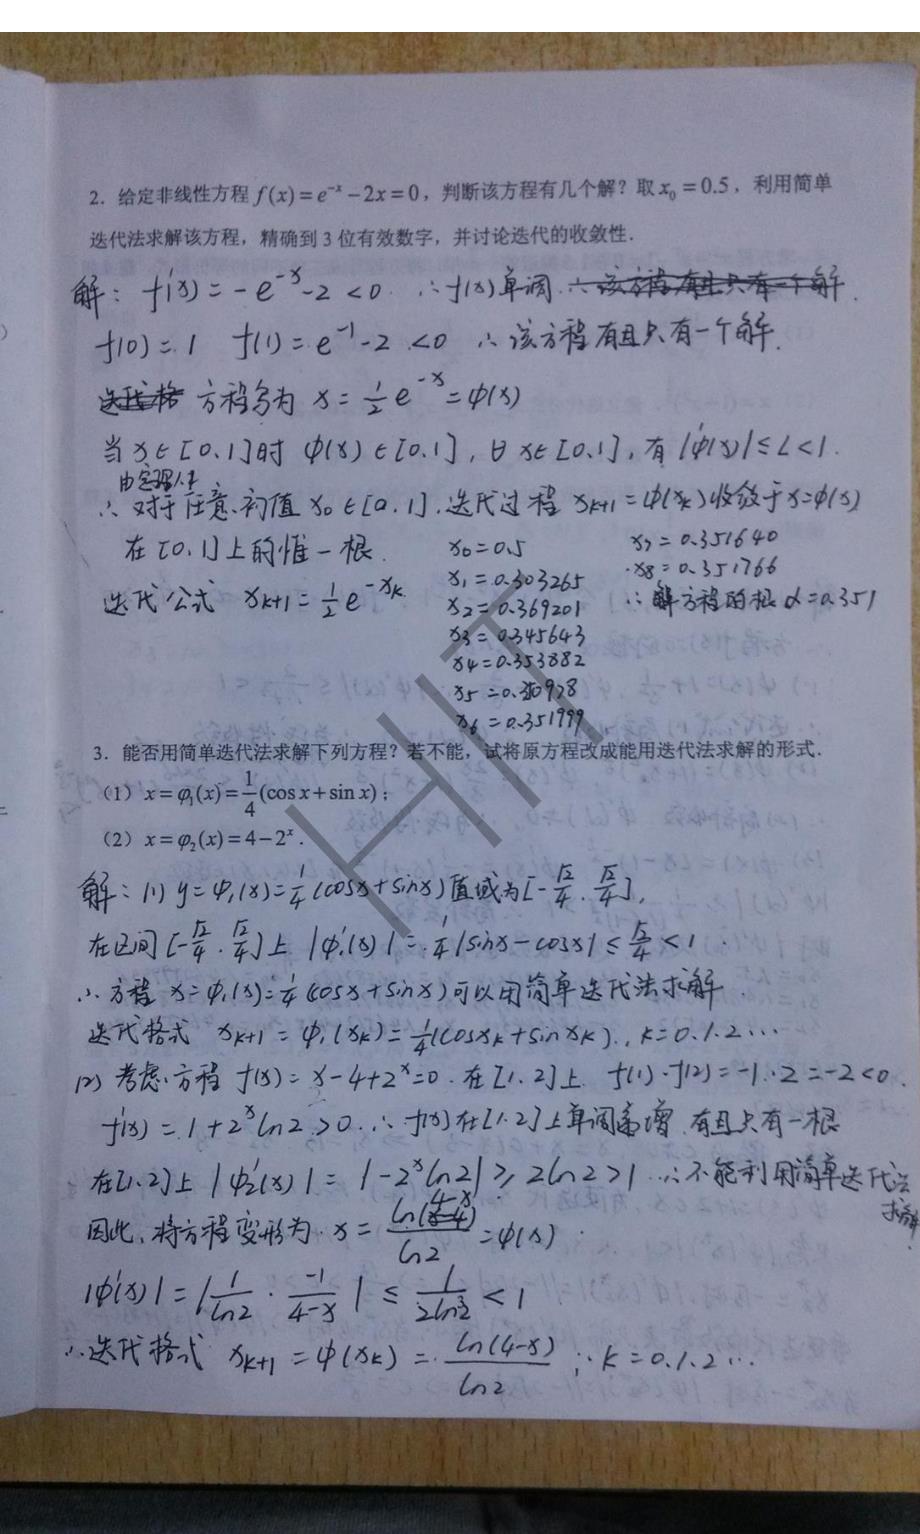 2. 给定非线性方程 f(x)=e^{-x}-2x=0，判断该方程有几个解？取 x₀=0.5，利用简单
迭代法求解该方程，精确到 3 位有效数字，并讨论迭代的收敛性.
解: f'(x)=-e^{-x}-2<0 ∴f(x)单调 ∴该方程有且只有一个解.
f(0)=1 f(1)=e^{-1}-2<0 ∴该方程有且只有一个解.
迭代格 方程多为 x=½e^{-x}=φ(x)
当x∈[0.1]时 φ(x)∈[0.1], 且 x∈[0.1], 有|φ'(x)|≤L<1.
由定理1.4
∴对于任意初值 x₀∈[0.1]. 迭代过程 x_{k+1}=φ(x_k)收敛于x=φ(x)
在[0.1]上的惟一根.
迭代公式 x_{k+1}=½e^{-x_k}
x₀=0.5
x₁=0.303265
x₂=0.369201
x₃=0.345643
x₄=0.353882
x₅=0.350978
x₆=0.351999
x₇=0.351640
x₈=0.351766
∴解方程的根α=0.351
3. 能否用简单迭代法求解下列方程？若不能，试将原方程改成能用迭代法求解的形式.
（1）x=φ₁(x)=1/4(cos x+sin x)；
（2）x=φ₂(x)=4-2^x.
解: (1) y=φ₁(x)=¼(cosx+sinx)值域为[-√2/4.√2/4],
在区间[-√2/4.√2/4]上 |φ₁'(x)|=¼|sinx-cosx|≤√2/4<1.
∴方程 x=φ₁(x)=¼(cosx+sinx)可以用简单迭代法求解.
迭代格式 x_{k+1}=φ₁(x_k)=¼(cosx_k+sinx_k)., k=0.1.2…
(2) 考虑方程 f(x)=x-4+2^x=0. 在[1.2]上 f(1)·f(2)=-1·2=-2<0.
f'(x)=1+2^x ln2>0 ∴f(x)在[1.2]上单调递增 有且只有一根
在[1.2]上 |φ₂'(x)|=|-2^x ln2|≥2ln2>1 ∴不能利用简单迭代法
求解.
因此, 将方程变形为 x=ln(4-x)/ln2=φ(x).
|φ'(x)|=|1/ln2·-1/(4-x)|≤1/(2ln2)<1
∴迭代格式 x_{k+1}=φ(x_k)=ln(4-x)/ln2 ∵k=0.1.2…
HIT